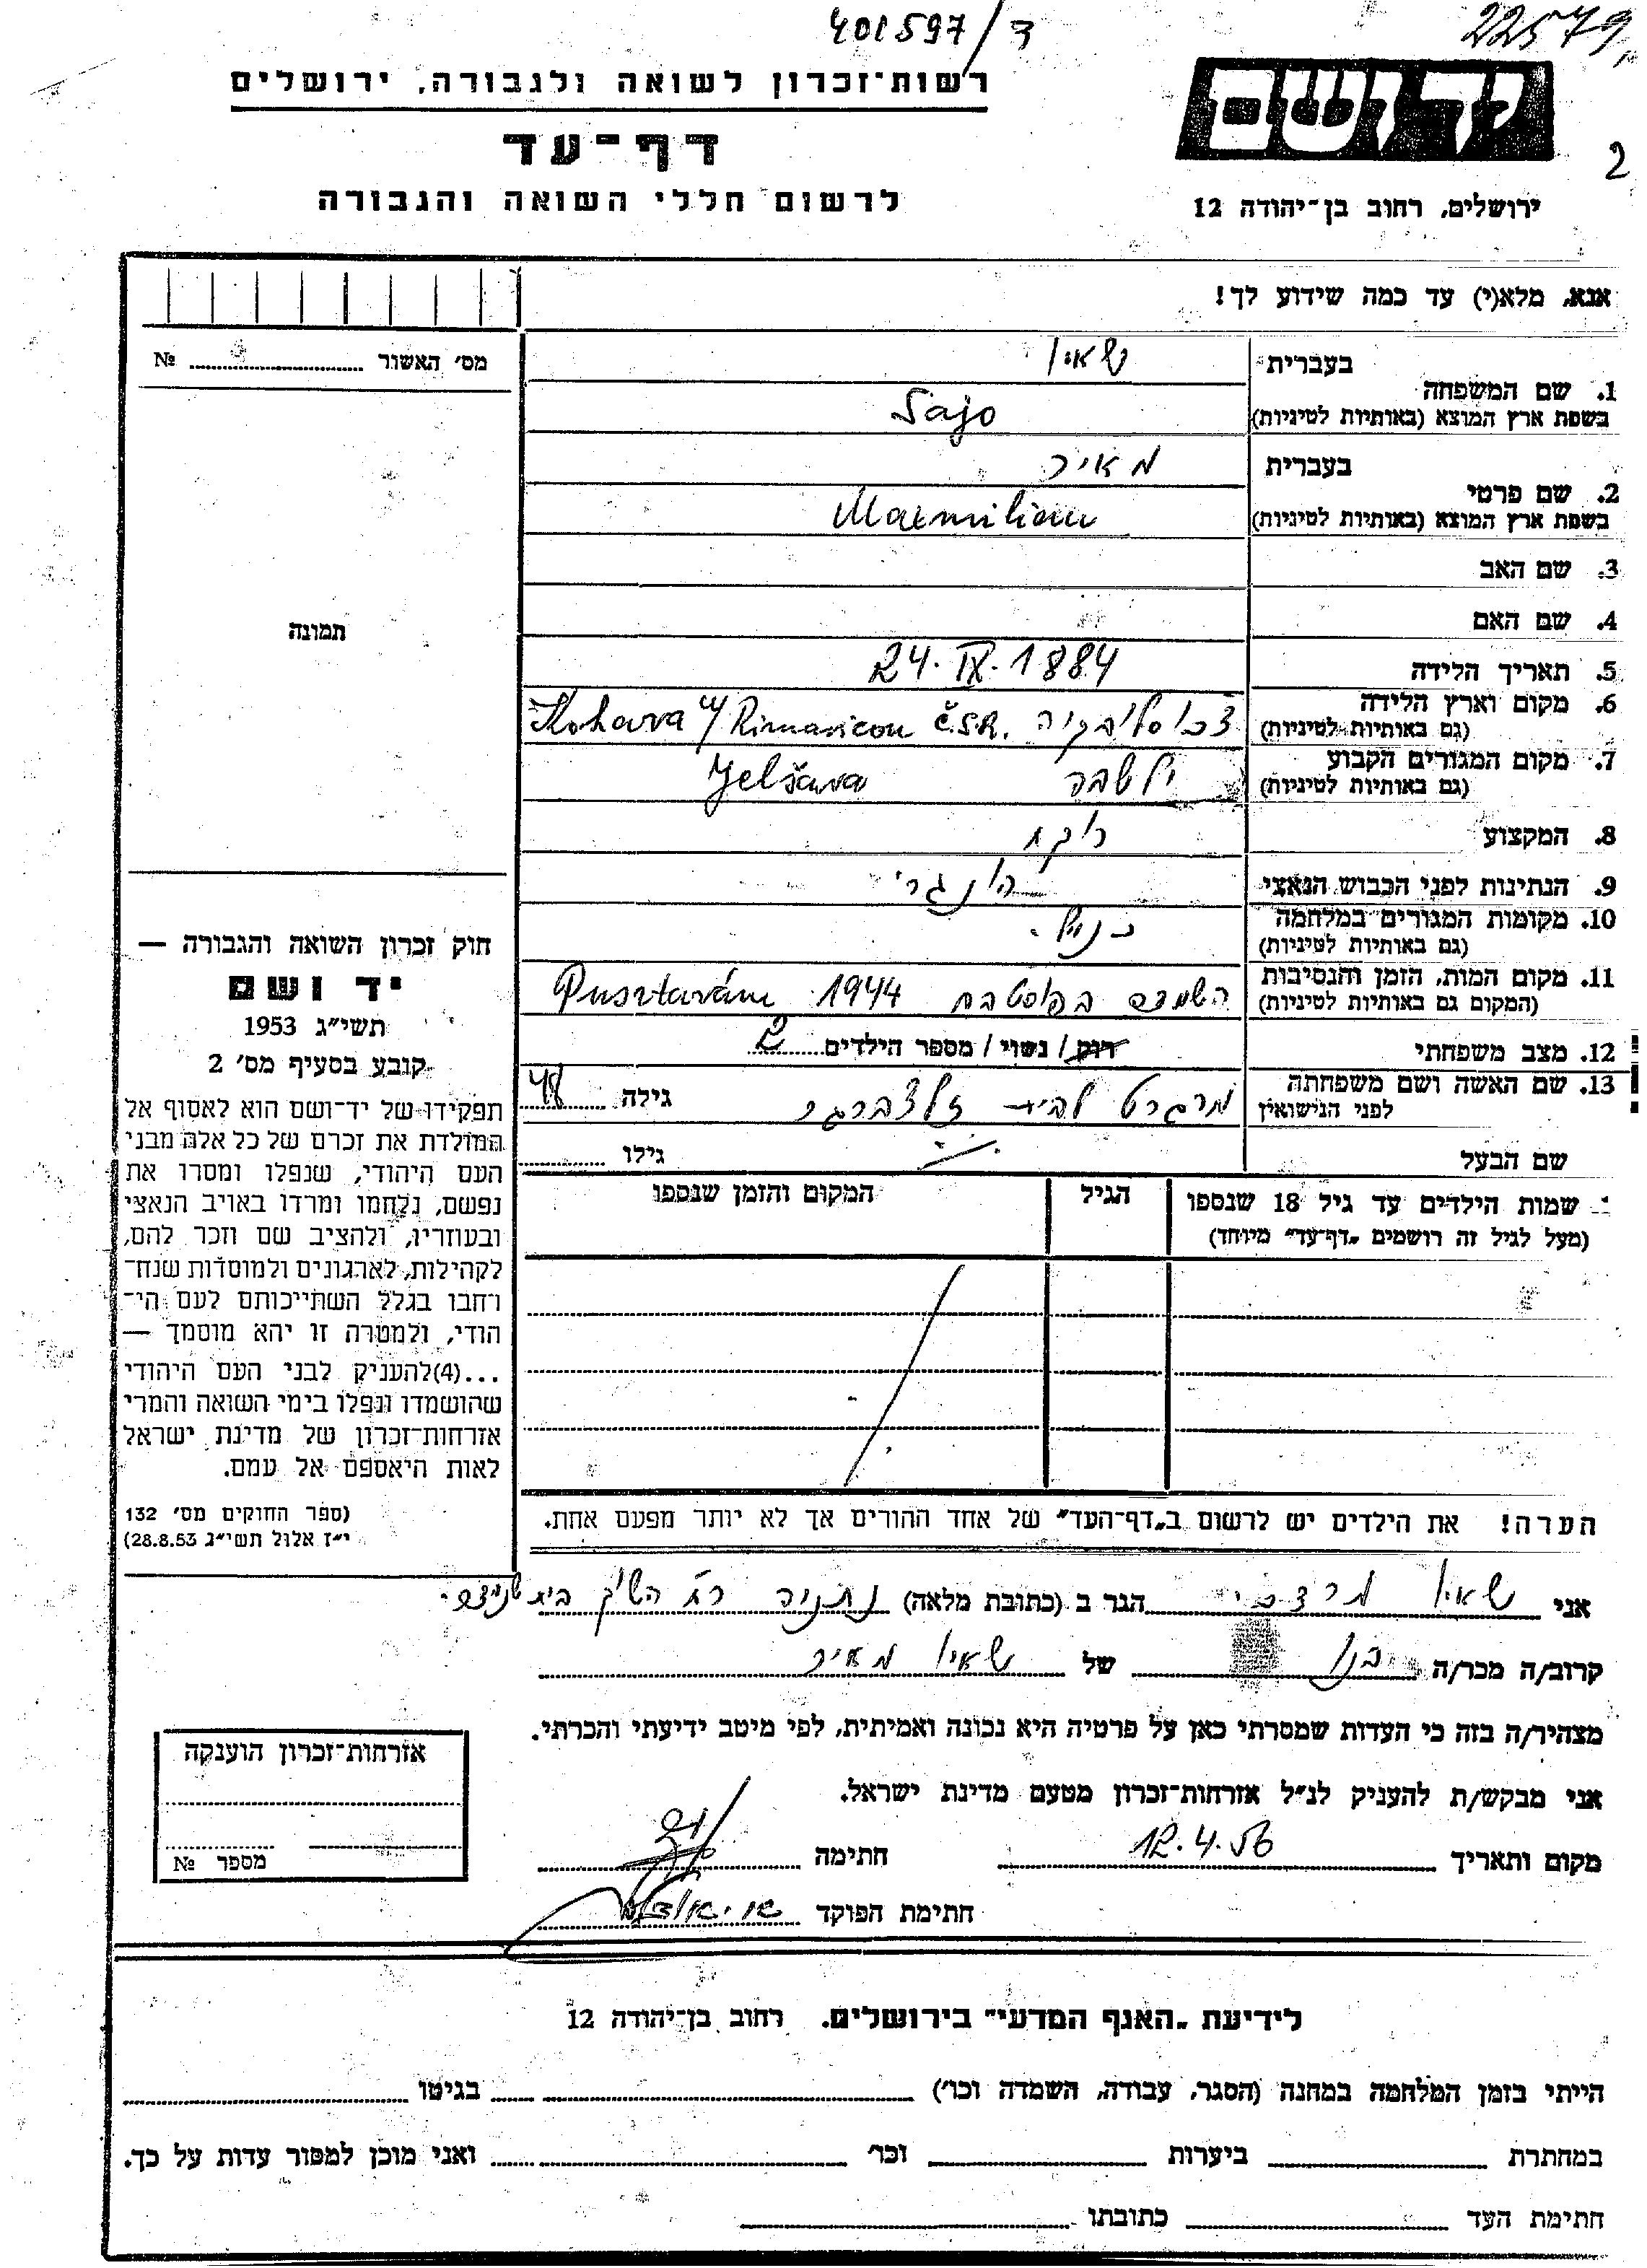 401597/ד
22579
רשות־זכרון לשואה ולגבורה, ירושלים
יד ושם
דף־עד
2
לרשום חללי השואה והגבורה
ירושלים, רחוב בן־יהודה 12
אנא, מלא(י) עד כמה שידוע לך!
מס׳ האשור № 
1. שם המשפחה
בעברית שאיו
בשפת ארץ המוצא (באותיות לטיניות) Sajo
2. שם פרטי
בעברית מאיר
בשפת ארץ המוצא (באותיות לטיניות) Maxmilian
3. שם האב
4. שם האם
תמונה
5. תאריך הלידה 24.IX.1884
6. מקום וארץ הלידה
(גם באותיות לטיניות) צכוסלובקיה Č.S.R.
7. מקום המגורים הקבוע
(גם באותיות לטיניות) ילשבה Jelšava
8. המקצוע רוקח
9. הנתינות לפני הכבוש הנאצי הונגרי
10. מקומות המגורים במלחמה
(גם באותיות לטיניות) כנ״ל.
11. מקום המות, הזמן והנסיבות
(המקום גם באותיות לטיניות) 1944 Pusztavám
12. מצב משפחתי רוק / נשוי / מספר הילדים 2
13. שם האשה ושם משפחתה
לפני הנישואין מרגרט לבית זלצברגר גילה 48
שם הבעל גילו
שמות הילדים עד גיל 18 שנספו הגיל המקום והזמן שנספו
(מעל לגיל זה רושמים „דף־עד״ מיוחד)
הערה! את הילדים יש לרשום ב„דף־העד״ של אחד ההורים אך לא יותר מפעם אחת.
חוק זכרון השואה והגבורה —
יד ושם
תשי״ג 1953
קובע בסעיף מס׳ 2
תפקידו של יד־ושם הוא לאסוף אל
המולדת את זכרם של כל אלה מבני
העם היהודי, שנפלו ומסרו את
נפשם, נלחמו ומרדו באויב הנאצי
ובעוזריו, ולהציב שם וזכר להם,
לקהילות, לארגונים ולמוסדות שנח־
רחבו בגלל השתייכותם לעם הי־
הודי, ולמטרה זו יהא מוסמך —
...(4)להעניק לבני העם היהודי
שהושמדו ונפלו בימי השואה והמרי
אזרחות־זכרון של מדינת ישראל
לאות היאספם אל עמם.
(ספר החוקים מס׳ 132
י״ז אלול תשי״ג 28.8.53)
אני שאיו מרדכי הגר ב (כתובת מלאה) נתניה רח׳
קרוב/ה מכר/ה בנו של שאיו מאיר
מצהיר/ה בזה כי העדות שמסרתי כאן על פרטיה היא נכונה ואמיתית, לפי מיטב ידיעתי והכרתי.
אני מבקש/ת להעניק לנ״ל אזרחות־זכרון מטעם מדינת ישראל.
מקום ותאריך 12.4.56 חתימה
חתימת הפוקד
אזרחות־זכרון הוענקה
מספר №
לידיעת „האגף המדעי״ בירושלים. רחוב בן־יהודה 12
הייתי בזמן המלחמה במחנה (הסגר, עבודה, השמדה וכו׳) בגיטו
במחתרת ביערות וכו׳ ואני מוכן למסור עדות על כך.
חתימת העד כתובתו